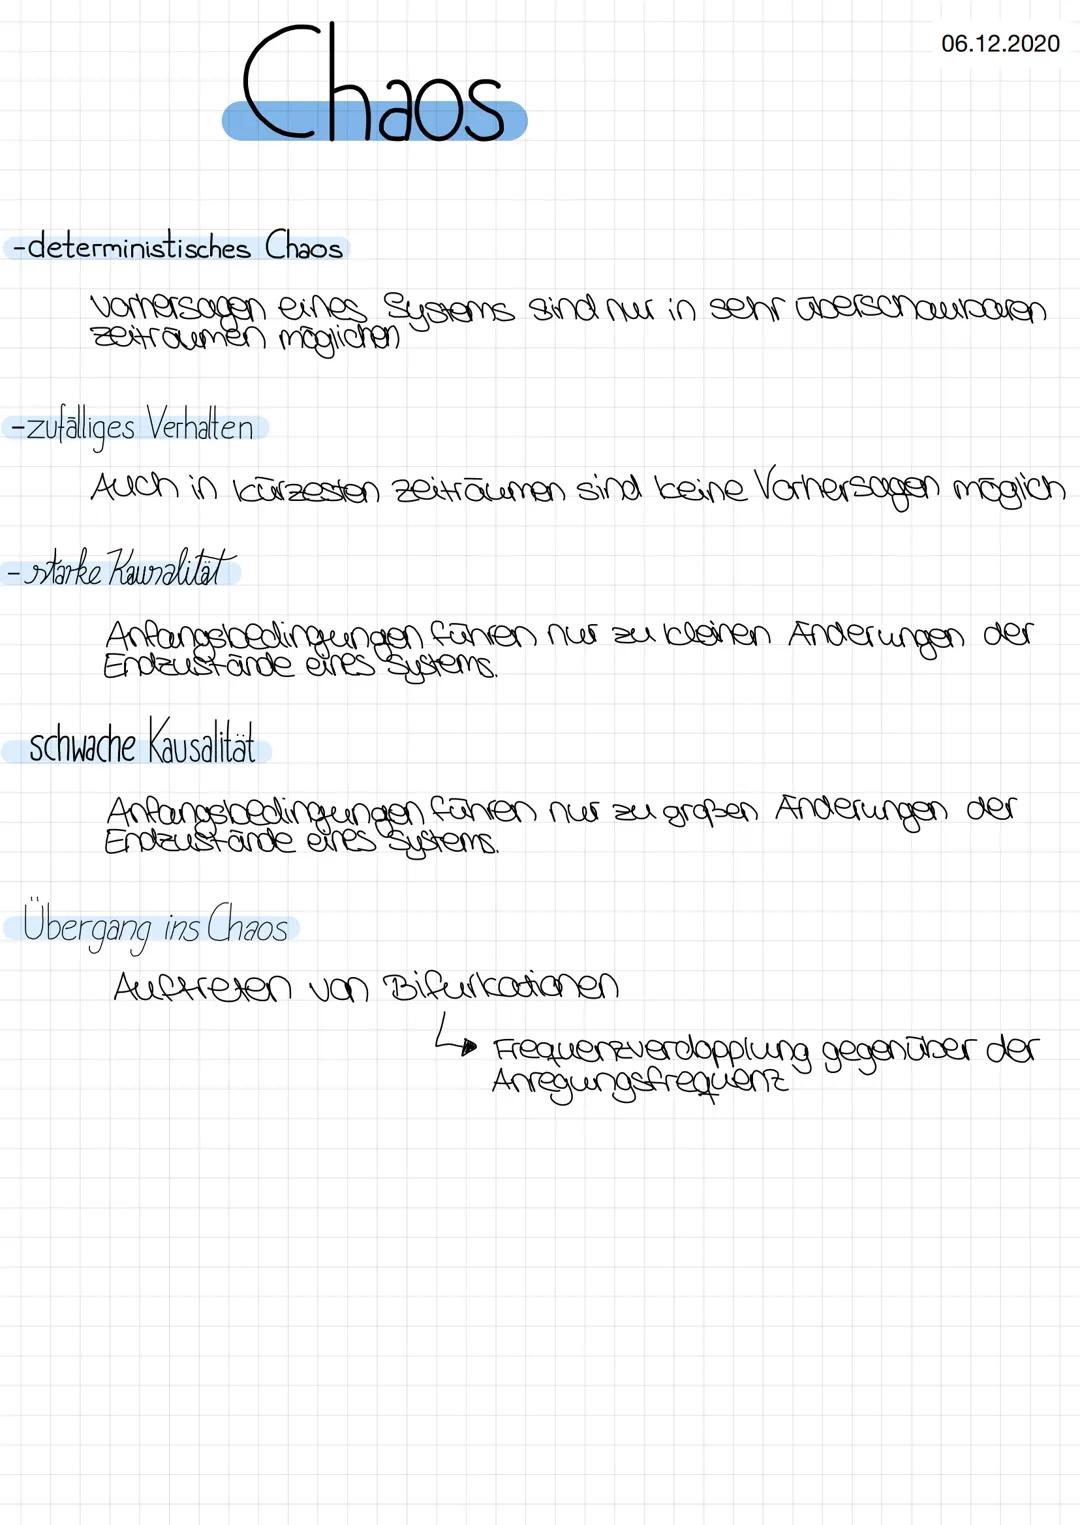 06.12.2020
Chaos
-deterministisches Chaos
Vorhersagen eines Systems sind nur in sehr überschaubaren
Zeiträumen möglichen
-zufälliges Verhalten
Auch in kürzesten Zeiträumen sind keine Vorhersagen möglich
-starke Kausalität
Anfangsbedingungen führen nur zu kleinen Änderungen der
Endzustände eines Systems.
schwache Kausalität
Anfangsbedingungen führen nur zu großen Änderungen der
Endzustände eines Systems.
Übergang ins Chaos
Auftreten von Bifurkationen
↳ Frequenzverdopplung gegenüber der
Anregungsfrequenz